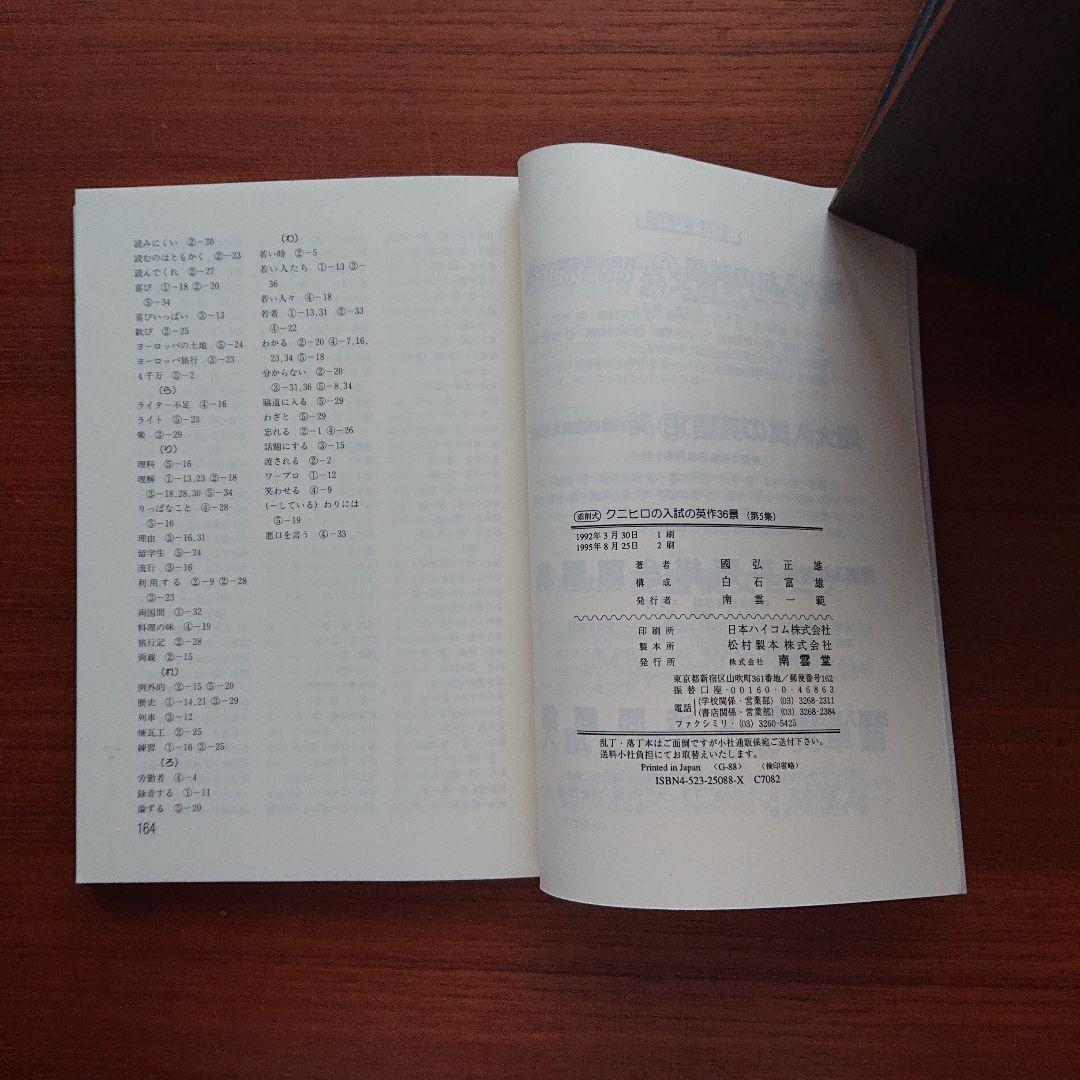 読みにくい ②−20
読むのはともかく ②−23
読んでくれ ②−27
喜び ①−18 ②−20
⑤−34
喜びいっぱい ③−13
歓び ②−25
ヨーロッパの土地 ⑤−24
ヨーロッパ旅行 ③−23
4千万 ⑤−2
(ら)
ライター不足 ④−16
ライト ⑤−23
楽 ③−29
(り)
理科 ⑤−16
理解 ①−13,23 ②−18
③−18,28,30 ⑤−34
りっぱなこと ④−28
⑤−10
理由 ③−16,31
留学生 ⑤−24
流行 ③−16
利用する ②−9 ②−28
③−23
両国間 ①−32
料理の味 ④−19
旅行記 ②−28
両親 ②−15
(れ)
例外的 ②−15 ⑤−20
歴史 ①−14,21 ③−29
列車 ③−12
煉瓦工 ②−25
練習 ①−16 ③−25
(ろ)
労働者 ④−4
録音する ①−11
論ずる ⑤−20
164
(わ)
若い時 ②−5
若い人たち ①−13 ③−
36
若い人々 ④−18
若者 ①−13,31 ②−33
④−22
わかる ②−20 ④−7,16,
23,34 ⑤−18
分からない ②−20
③−31,36 ⑤−8,34
脇道に入る ⑤−29
わざと ⑤−29
忘れる ②−1 ④−26
話題にする ③−15
渡される ②−2
ワープロ ①−12
笑わせる ④−9
(〜している) わりには
⑤−19
悪口を言う ④−33
添削式 クニヒロの入試の英作36景 (第5集)
1992年3月30日 1刷
1995年8月25日 2刷
著者 國弘正雄
構成 白石富雄
発行者 南雲一範
印刷所 日本ハイコム株式会社
製本所 松村製本株式会社
発行所 株式会社 南雲堂
東京都新宿区山吹町361番地／郵便番号162
振替口座・00160-0-46863
電話 (学校関係・営業部) (03) 3268-2311
(書店関係・営業部) (03) 3268-2384
ファクシミリ・(03) 3260-5425
乱丁・落丁本はご面倒ですが小社通販係宛ご送付下さい。
送料小社負担にてお取替えいたします。
Printed in Japan 〈G-88〉 〈検印省略〉
ISBN4-523-25088-X C7082